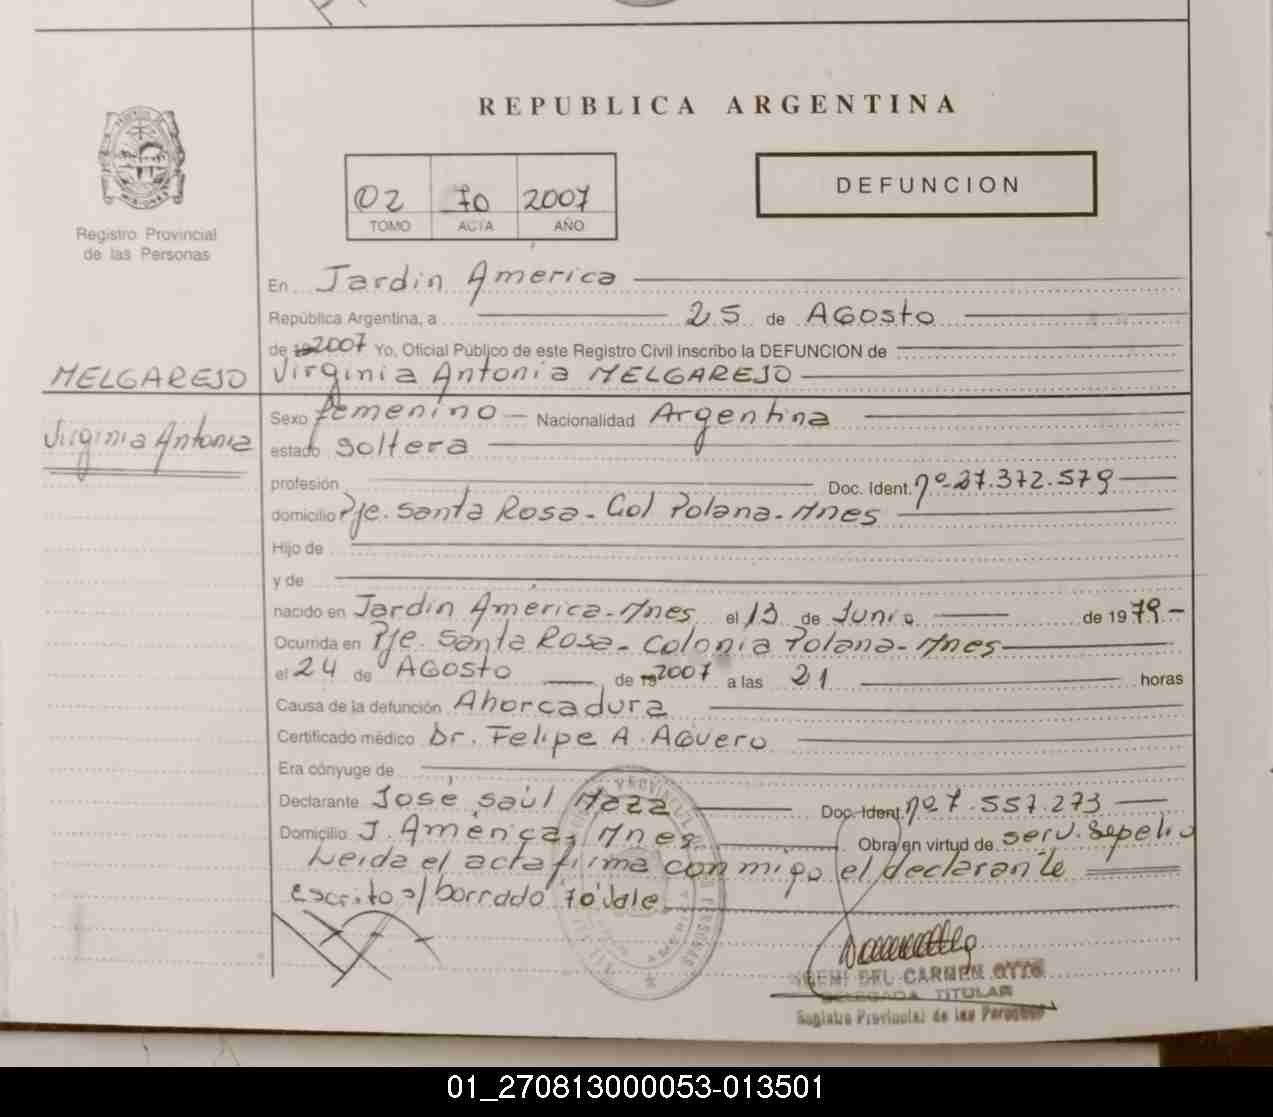 REPUBLICA ARGENTINA
02 70 2007
TOMO ACTA AÑO
DEFUNCION
Registro Provincial
de las Personas
En Jardin America
República Argentina, a 25 de AGosto
de 19 2007 Yo, Oficial Público de este Registro Civil inscribo la DEFUNCION de
MELGAREJO
Virginia Antonia MELGAREJO
Virginia Antonia
Sexo femenino Nacionalidad Argentina
estado Soltera
profesión Doc. Ident. nº 27.372.579
domicilio Pje. Santa Rosa - Col Polana - Mnes
Hijo de
y de
nacido en Jardin América - Mnes el 13 de Junio de 1979 -
Ocurrida en Pje. Santa Rosa - Colonia Polana - Mnes
el 24 de AGOSTO de 19 2007 a las 21 horas
Causa de la defunción Ahorcadura
Certificado médico Dr. Felipe A. AGuero
Era cónyuge de
Declarante José Saúl Doc. Ident. nº 7.557.273
Domicilio J. América, Mnes Obra en virtud de serv. Sepelio
Leida el acta firma con migo el declarante
escrito s/ borrado "70" Vale
DEL CARMEN
DELEGADA TITULAR
Registro Provincial de las Personas
01_270813000053-013501